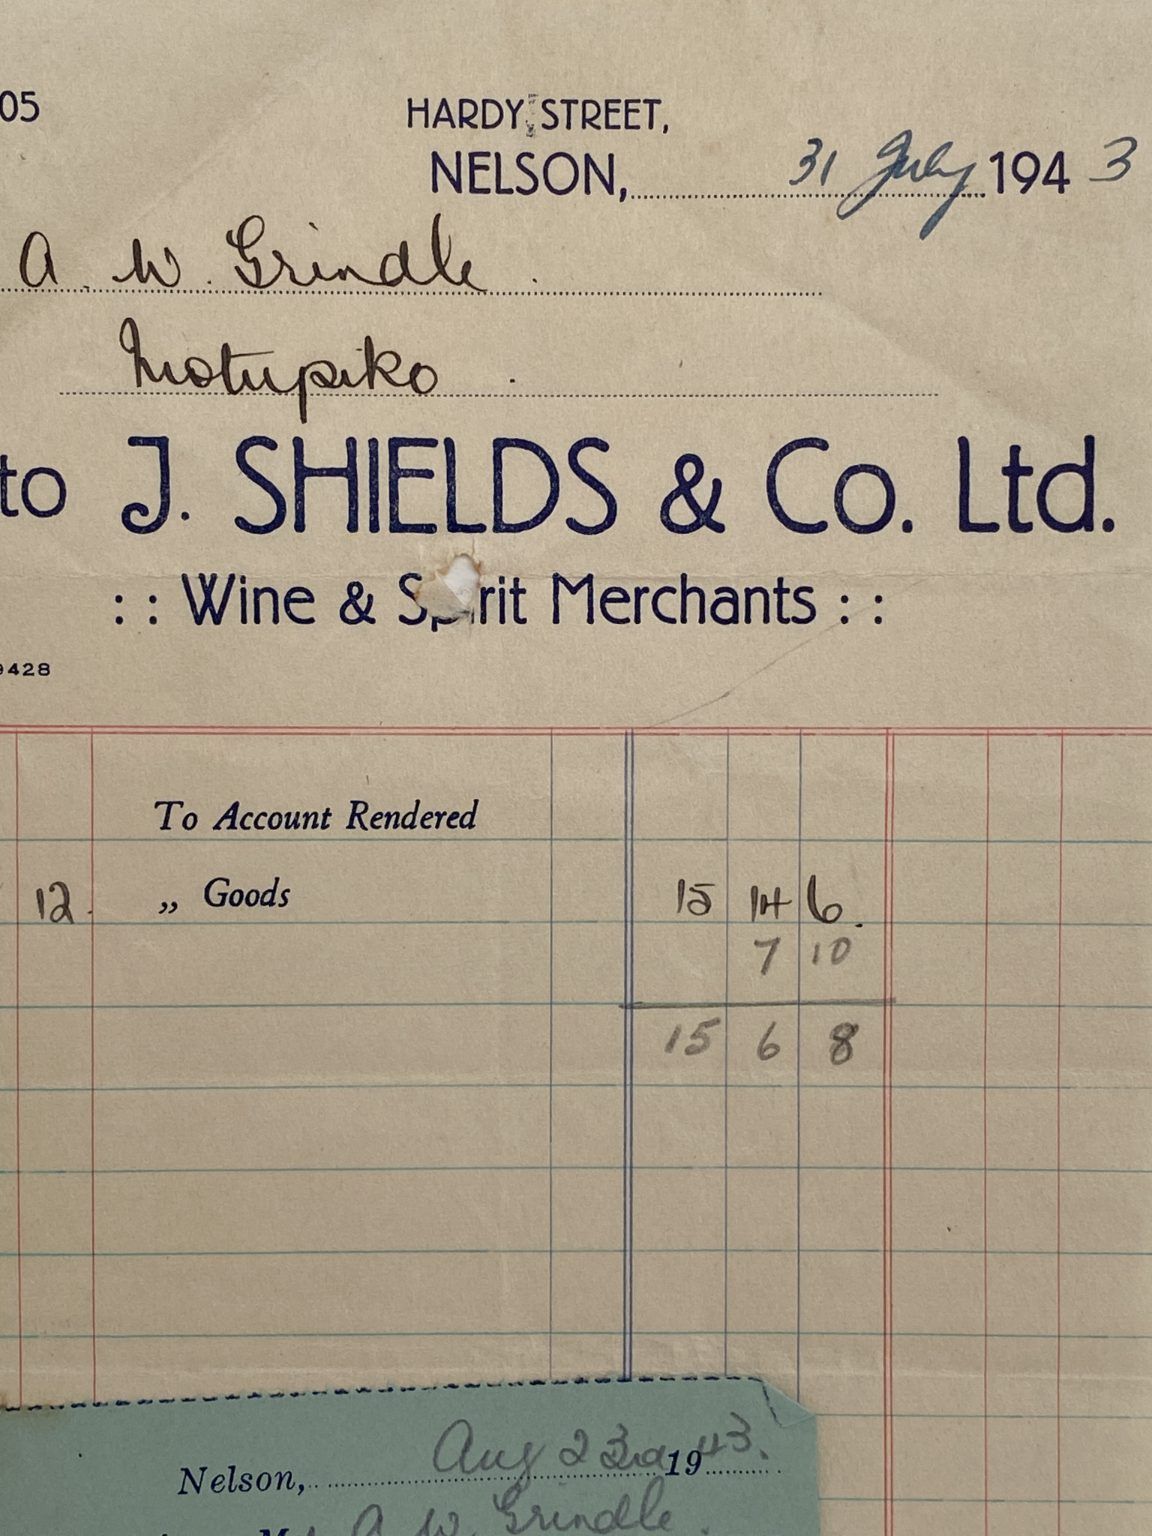 05
HARDY STREET,
NELSON, 31 July 1943
A. W. Grindle.
Motupiko.
to J. SHIELDS & Co. Ltd.
:: Wine & Spirit Merchants ::
9428
To Account Rendered
12. „ Goods 15 14 6.
7 10
15 6 8
Nelson, Aug 23rd 1943.
A. W. Grindle.